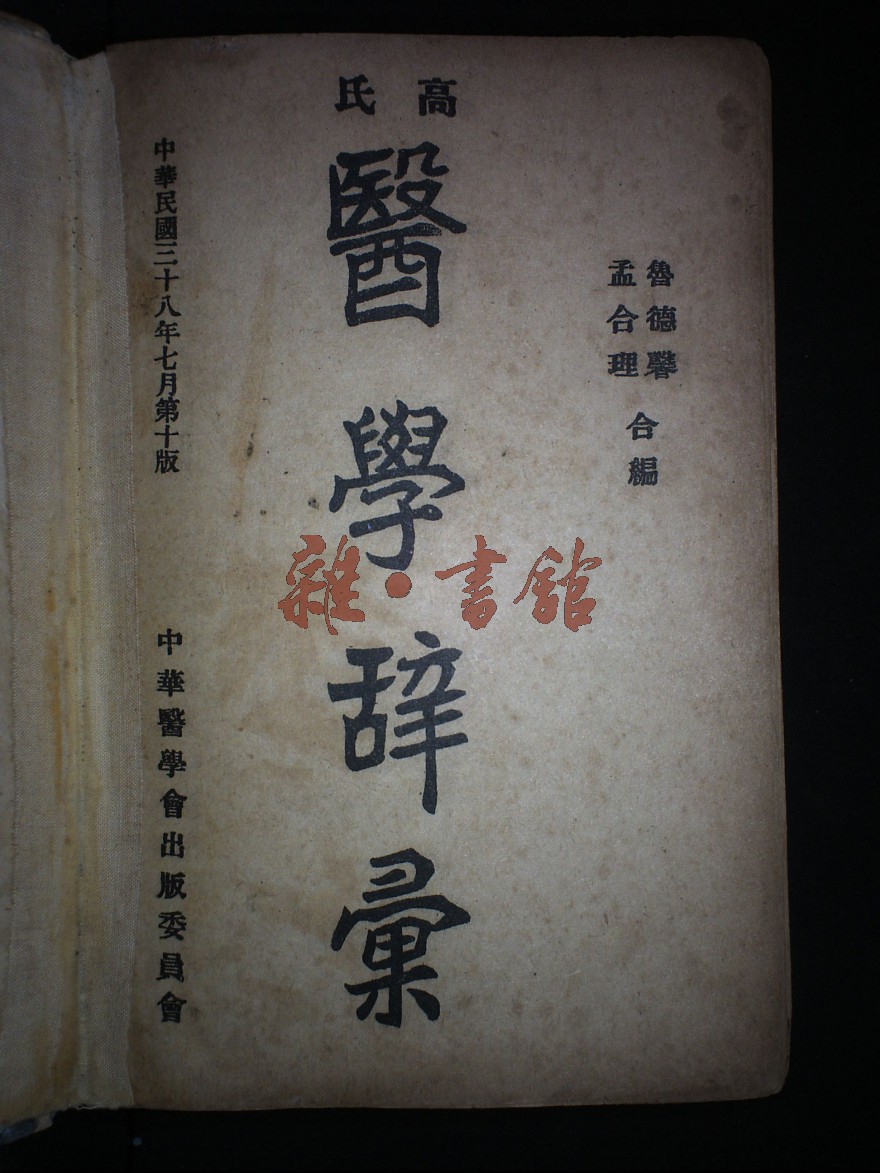 高氏
醫學辞彙
魯德馨
孟合理
合編
中華民國三十八年七月第十版
中華醫學會出版委員會
雜·書館